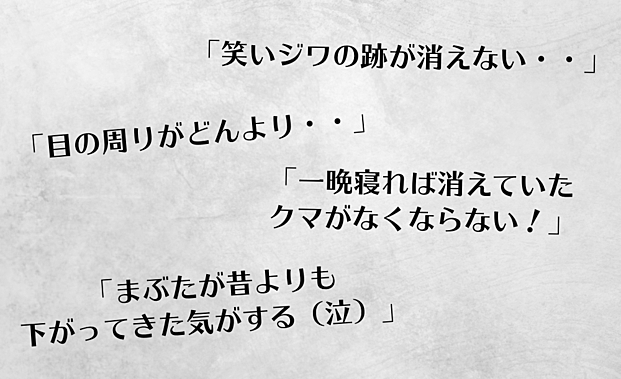 「笑いジワの跡が消えない・・」
「目の周りがどんより・・」
「一晩寝れば消えていた
クマがなくならない！」
「まぶたが昔よりも
下がってきた気がする（泣）」